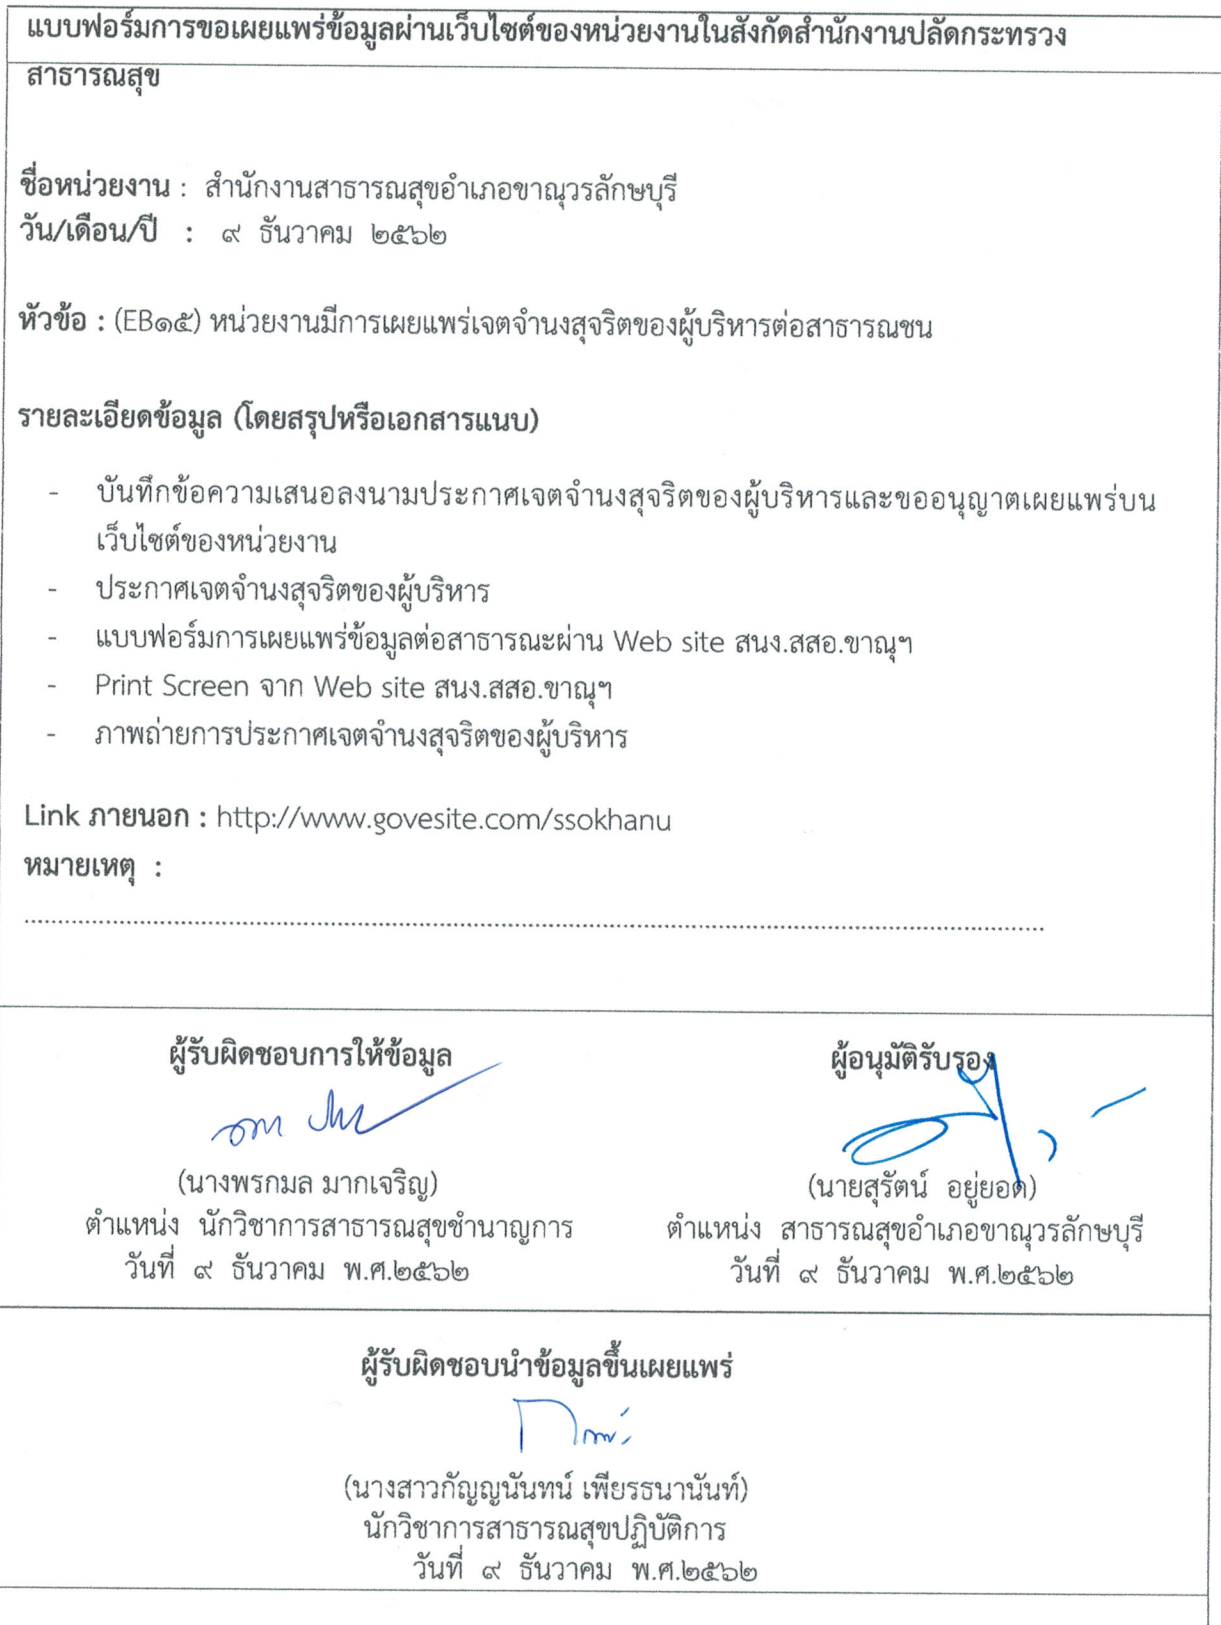 แบบฟอร์มการขอเผยแพร่ข้อมูลผ่านเว็บไซต์ของหน่วยงานในสังกัดสำนักงานปลัดกระทรวง
สาธารณสุข
ชื่อหน่วยงาน : สำนักงานสาธารณสุขอำเภอขาณุวรลักษบุรี
วัน/เดือน/ปี : ๙ ธันวาคม ๒๕๖๒
หัวข้อ : (EB๑๕) หน่วยงานมีการเผยแพร่เจตจำนงสุจริตของผู้บริหารต่อสาธารณชน
รายละเอียดข้อมูล (โดยสรุปหรือเอกสารแนบ)
- บันทึกข้อความเสนอลงนามประกาศเจตจำนงสุจริตของผู้บริหารและขออนุญาตเผยแพร่บน
เว็บไซต์ของหน่วยงาน
- ประกาศเจตจำนงสุจริตของผู้บริหาร
- แบบฟอร์มการเผยแพร่ข้อมูลต่อสาธารณะผ่าน Web site สนง.สสอ.ขาณุฯ
- Print Screen จาก Web site สนง.สสอ.ขาณุฯ
- ภาพถ่ายการประกาศเจตจำนงสุจริตของผู้บริหาร
Link ภายนอก : http://www.govesite.com/ssokhanu
หมายเหตุ :
ผู้รับผิดชอบการให้ข้อมูล
(นางพรกมล มากเจริญ)
ตำแหน่ง นักวิชาการสาธารณสุขชำนาญการ
วันที่ ๙ ธันวาคม พ.ศ.๒๕๖๒
ผู้อนุมัติรับรอง
(นายสุรัตน์ อยู่ยอด)
ตำแหน่ง สาธารณสุขอำเภอขาณุวรลักษบุรี
วันที่ ๙ ธันวาคม พ.ศ.๒๕๖๒
ผู้รับผิดชอบนำข้อมูลขึ้นเผยแพร่
(นางสาวกัญญนันทน์ เพียรธนานันท์)
นักวิชาการสาธารณสุขปฏิบัติการ
วันที่ ๙ ธันวาคม พ.ศ.๒๕๖๒